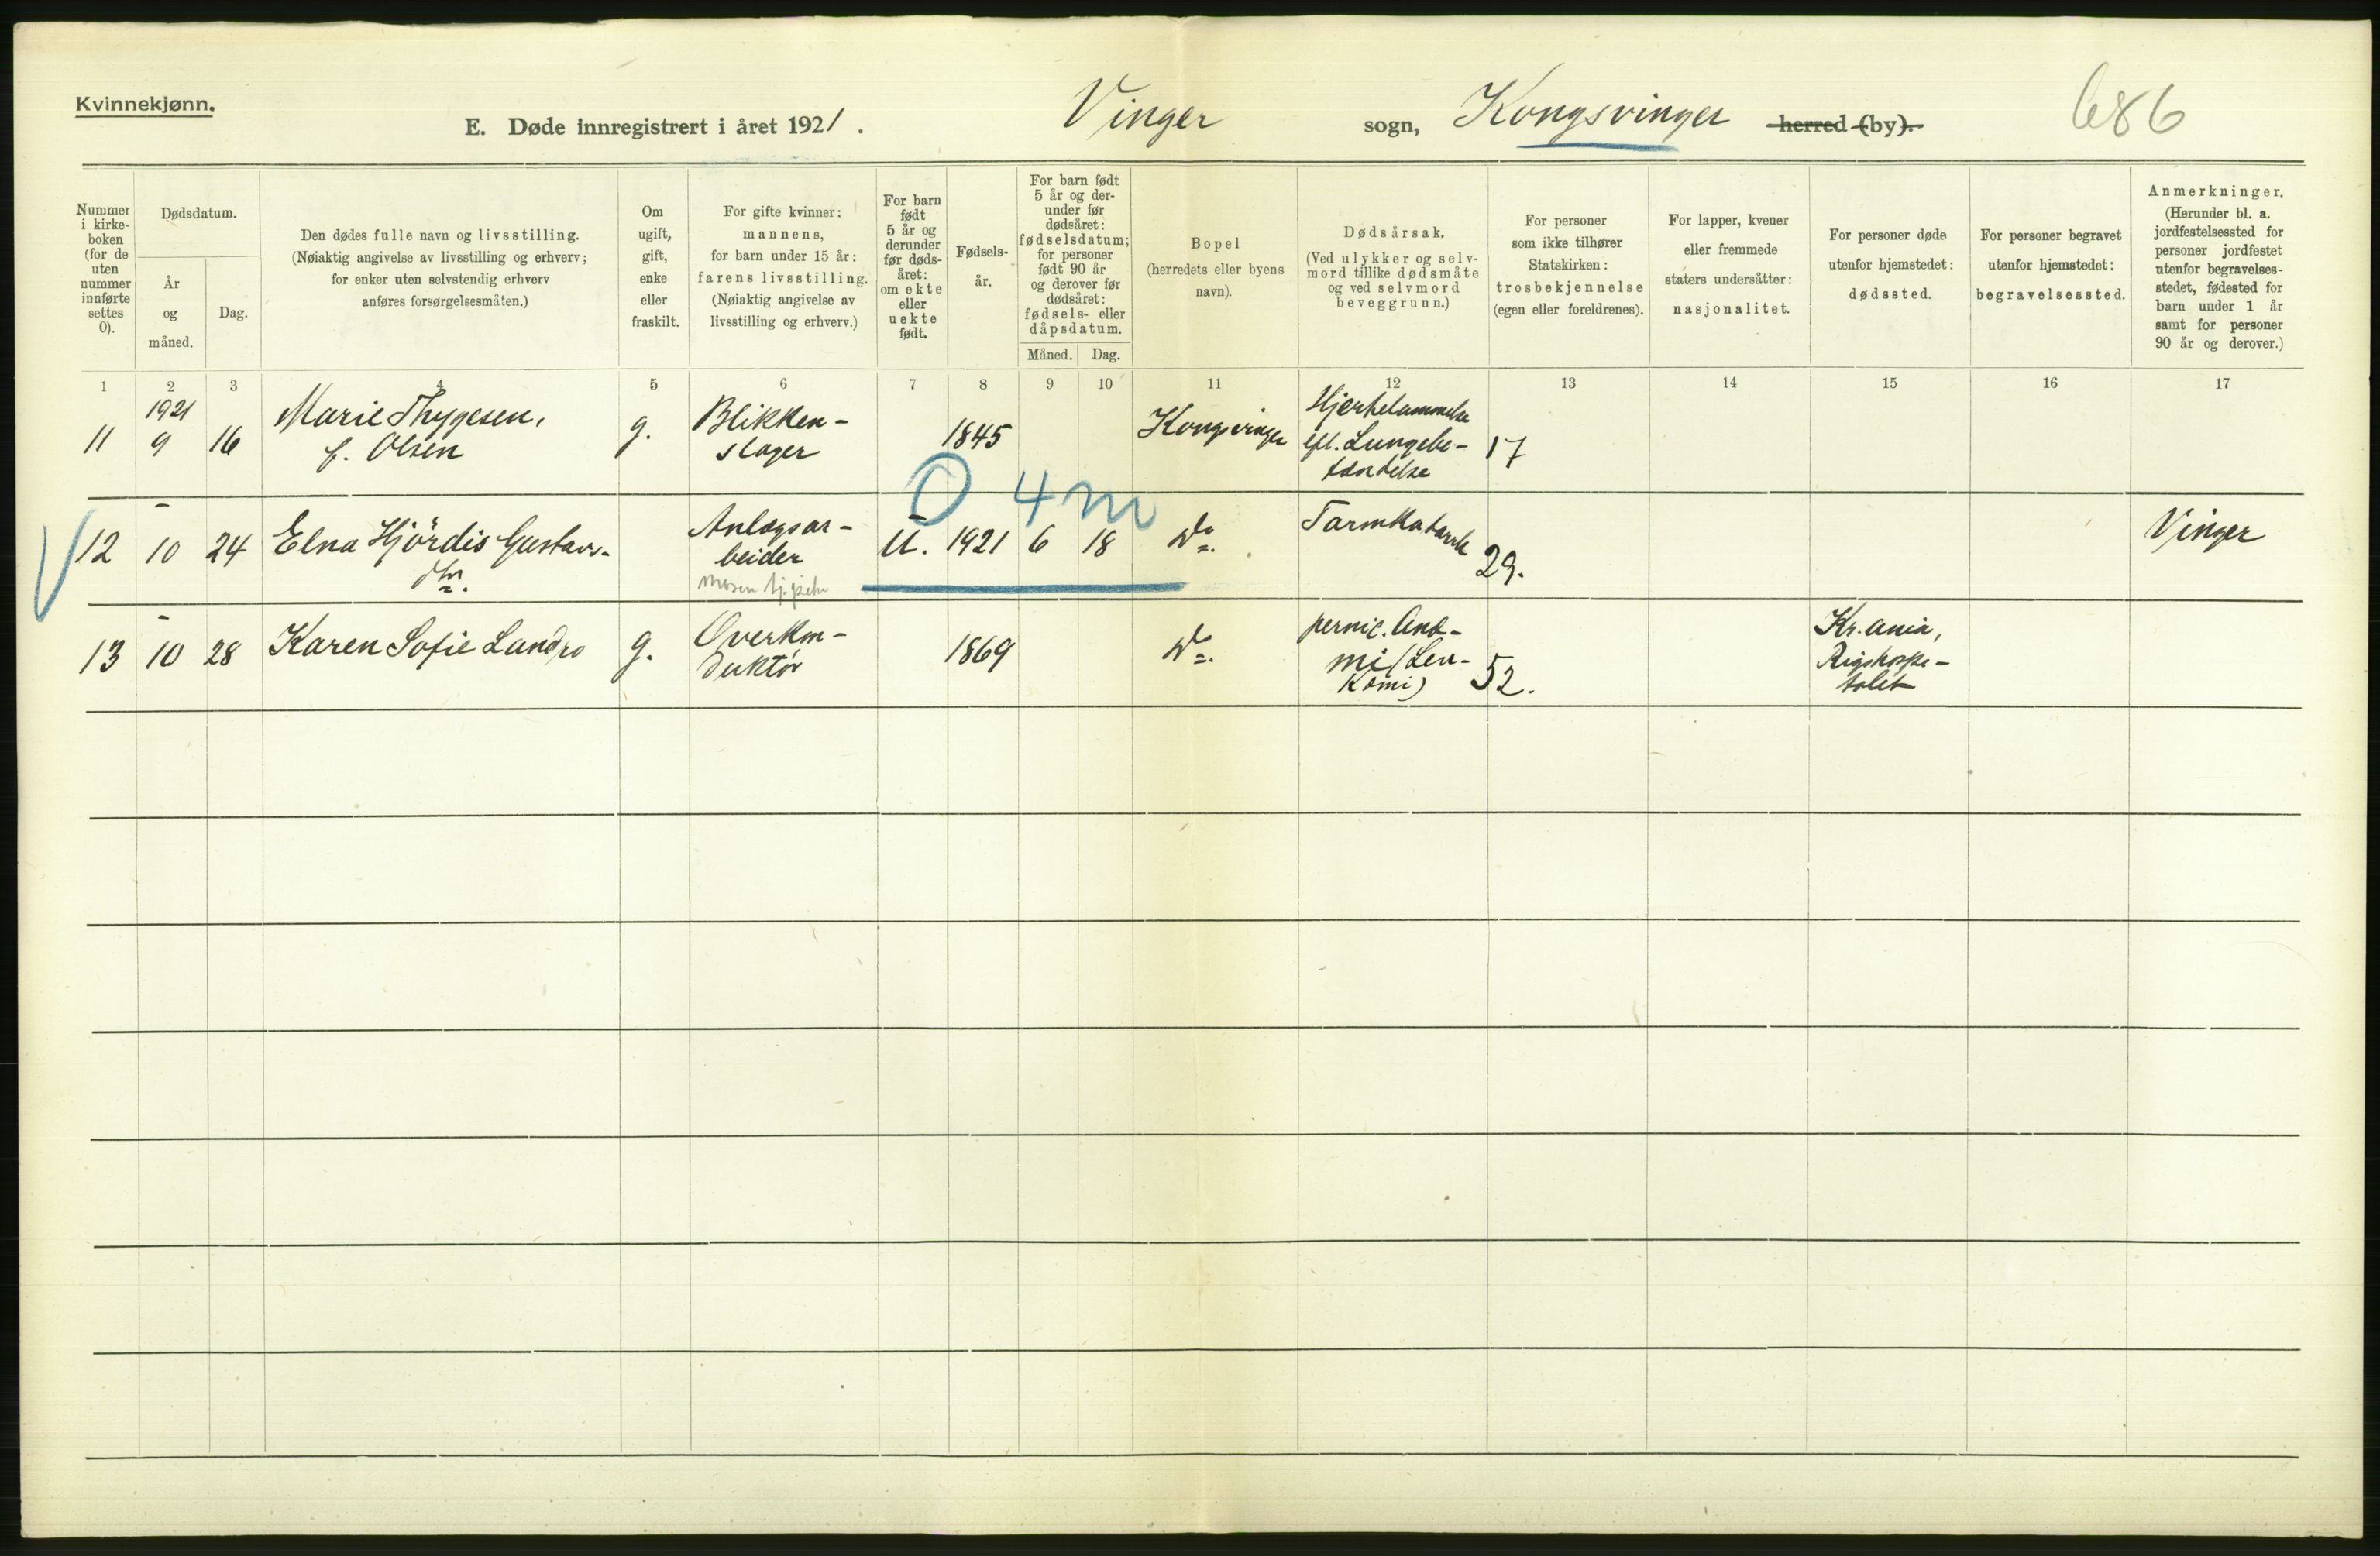 Kvinnekjønn.
E. Døde innregistrert i året 1921. Vinger sogn, Kongsvinger herred (by).
686
Nummer
i kirke-
boken
(for de
uten
nummer
innførte
settes
0).
Dødsdatum.
År
og
måned.
Dag.
Den dødes fulle navn og livsstilling.
(Nøiaktig angivelse av livsstilling og erhverv;
for enker uten selvstendig erhverv
anføres forsørgelsesmåten.)
Om
ugift,
gift,
enke
eller
fraskilt.
For gifte kvinner:
mannens,
for barn under 15 år:
farens livsstilling.
(Nøiaktig angivelse av
livsstilling og erhverv.)
For barn
født
5 år og
derunder
før døds-
året:
om ekte
eller
uekte
født.
Fødsels-
år.
For barn født
5 år og der-
under før
dødsåret:
fødselsdatum;
for personer
født 90 år
og derover før
dødsåret:
fødsels- eller
dåpsdatum.
Måned. Dag.
Bopel
(herredets eller byens
navn).
Dødsårsak.
(Ved ulykker og selv-
mord tillike dødsmåte
og ved selvmord
beveggrunn.)
For personer
som ikke tilhører
Statskirken:
trosbekjennelse
(egen eller foreldrenes).
For lapper, kvener
eller fremmede
staters undersåtter:
nasjonalitet.
For personer døde
utenfor hjemstedet:
dødssted.
For personer begravet
utenfor hjemstedet:
begravelsessted.
Anmerkninger.
(Herunder bl. a.
jordfestelsessted for
personer jordfestet
utenfor begravelses-
stedet, fødested for
barn under 1 år
samt for personer
90 år og derover.)
1 2 3 4 5 6 7 8 9 10 11 12 13 14 15 16 17
1921
11 9 16
Marie Thygesen,
f. Olsen
g.
Blikken-
slager
1845
Kongsvinger
Hjertelammelse
eft. Lungebe-
tændelse
17
0 4 m
-
12 10 24
Elna Hjördis Gustavs-
dtr.
Anlægsar-
beider
U. 1921 6 18
Do.
Tarmkatarrh
29.
Vinger
-
13 10 28
Karen Sofie Landro
g.
Overkon-
duktör
1869
Do.
pernic. Anæ-
mi (Leu-
kæmi)
52.
Kr.ania,
Rigshospi-
talet